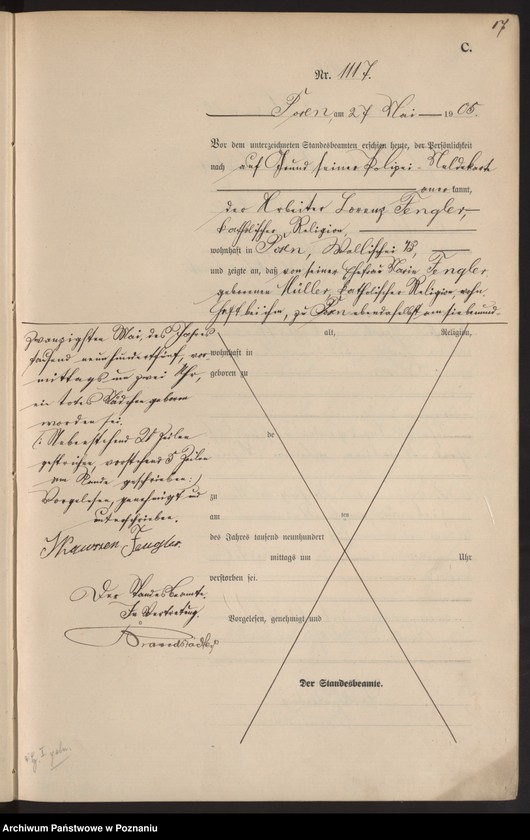 17
C.
Nr. 1117.
Posen, am 27 Mai 1905.
Vor dem unterzeichneten Standesbeamten erschien heute, der Persönlichkeit
nach auf Grund seiner Polizei-Meldekarte
anerkannt,
der Arbeiter Lorenz Fengler,
katholischer Religion,
wohnhaft in Posen, Wallischei
und zeigte an, daß von seiner Ehefrau Maria Fengler,
geborenen Müller, katholischer Religion, wohn-
haft bei ihm, zu Posen ebendaselbst am
zwanzigsten Mai, des Jahres
tausend neunhundertfünf, vor-
mittags um zwei Uhr,
ein totes Mädchen geboren
worden sei.
Zeilen
gestrichen, vorstehend 5 Zeilen
am Rande geschrieben.
Vorgelesen, genehmigt und
unterschrieben.
Fengler.
Der Standesbeamte.
In Vertretung.
alt, Religion,
wohnhaft in
geboren zu
de
zu
am ten
des Jahres tausend neunhundert
mittags um Uhr
verstorben sei.
Vorgelesen, genehmigt und
Der Standesbeamte.
Archiwum Państwowe w Poznaniu